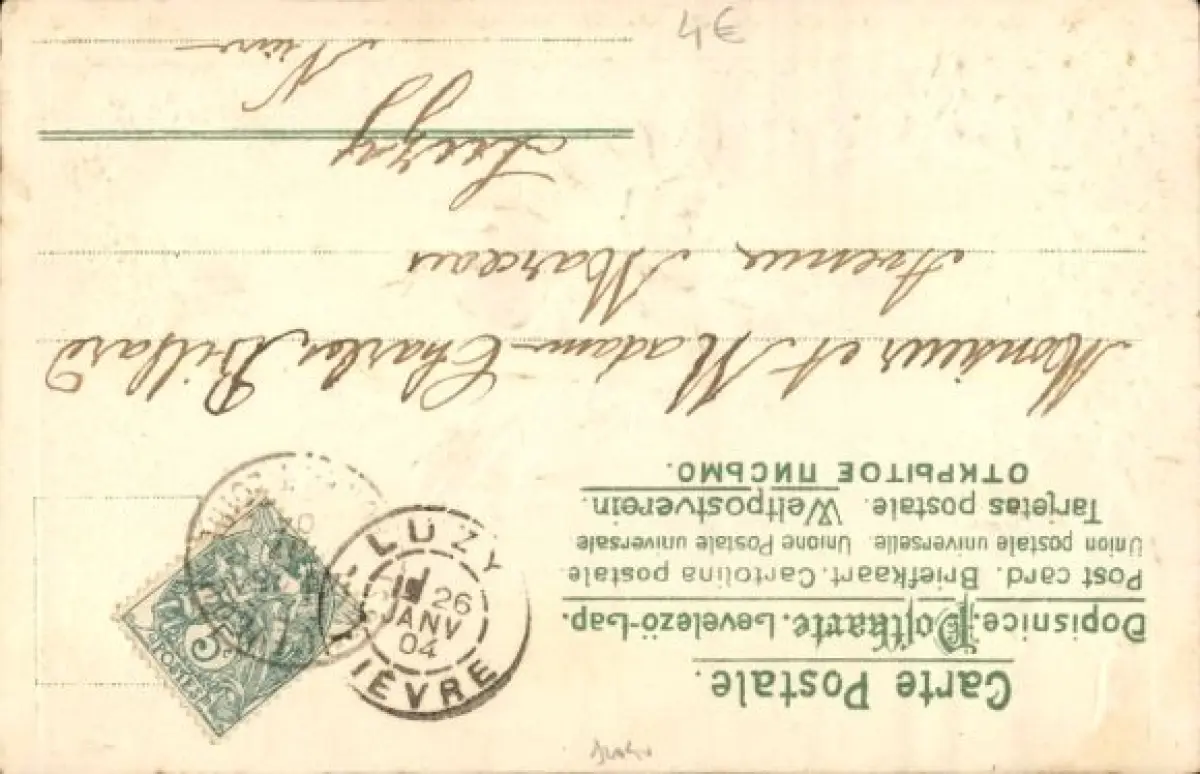 Carte Postale.
Dopisnice. Postkarte. Levelező-Lap.
Post card. Briefkaart. Cartolina postale
Union postale universelle. Unione Postale universale
Tarjetas postale. Weltpostverein.
ОТКРЫТОЕ ПИСЬМО.
LUZY
26
JANV
04
NIÈVRE
5
POSTES
Monsieur et Madame Charles Billard
Avenue Marceau
Luzy
Nièvre
4€